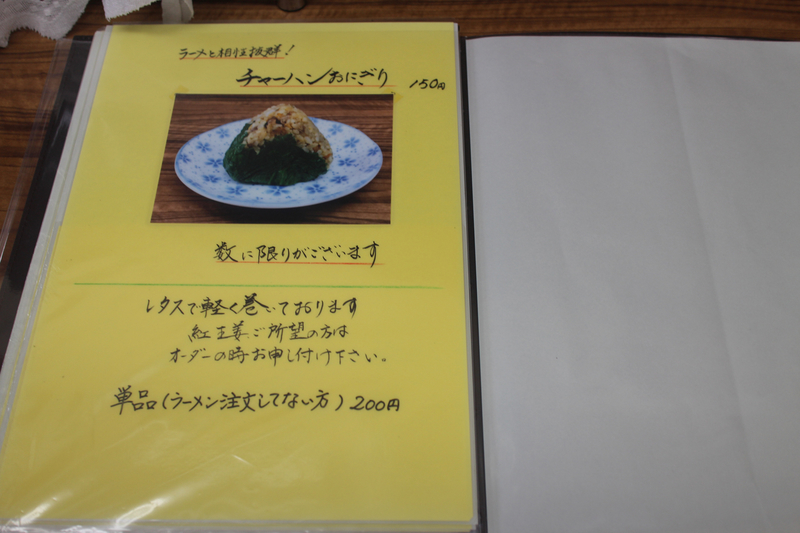 ラーメンと相性抜群!
チャーハンおにぎり 150円
数に限りがございます
レタスで軽く巻いております
紅生姜ご所望の方は
オーダーの時お申し付け下さい。
単品(ラーメン注文してない方)200円